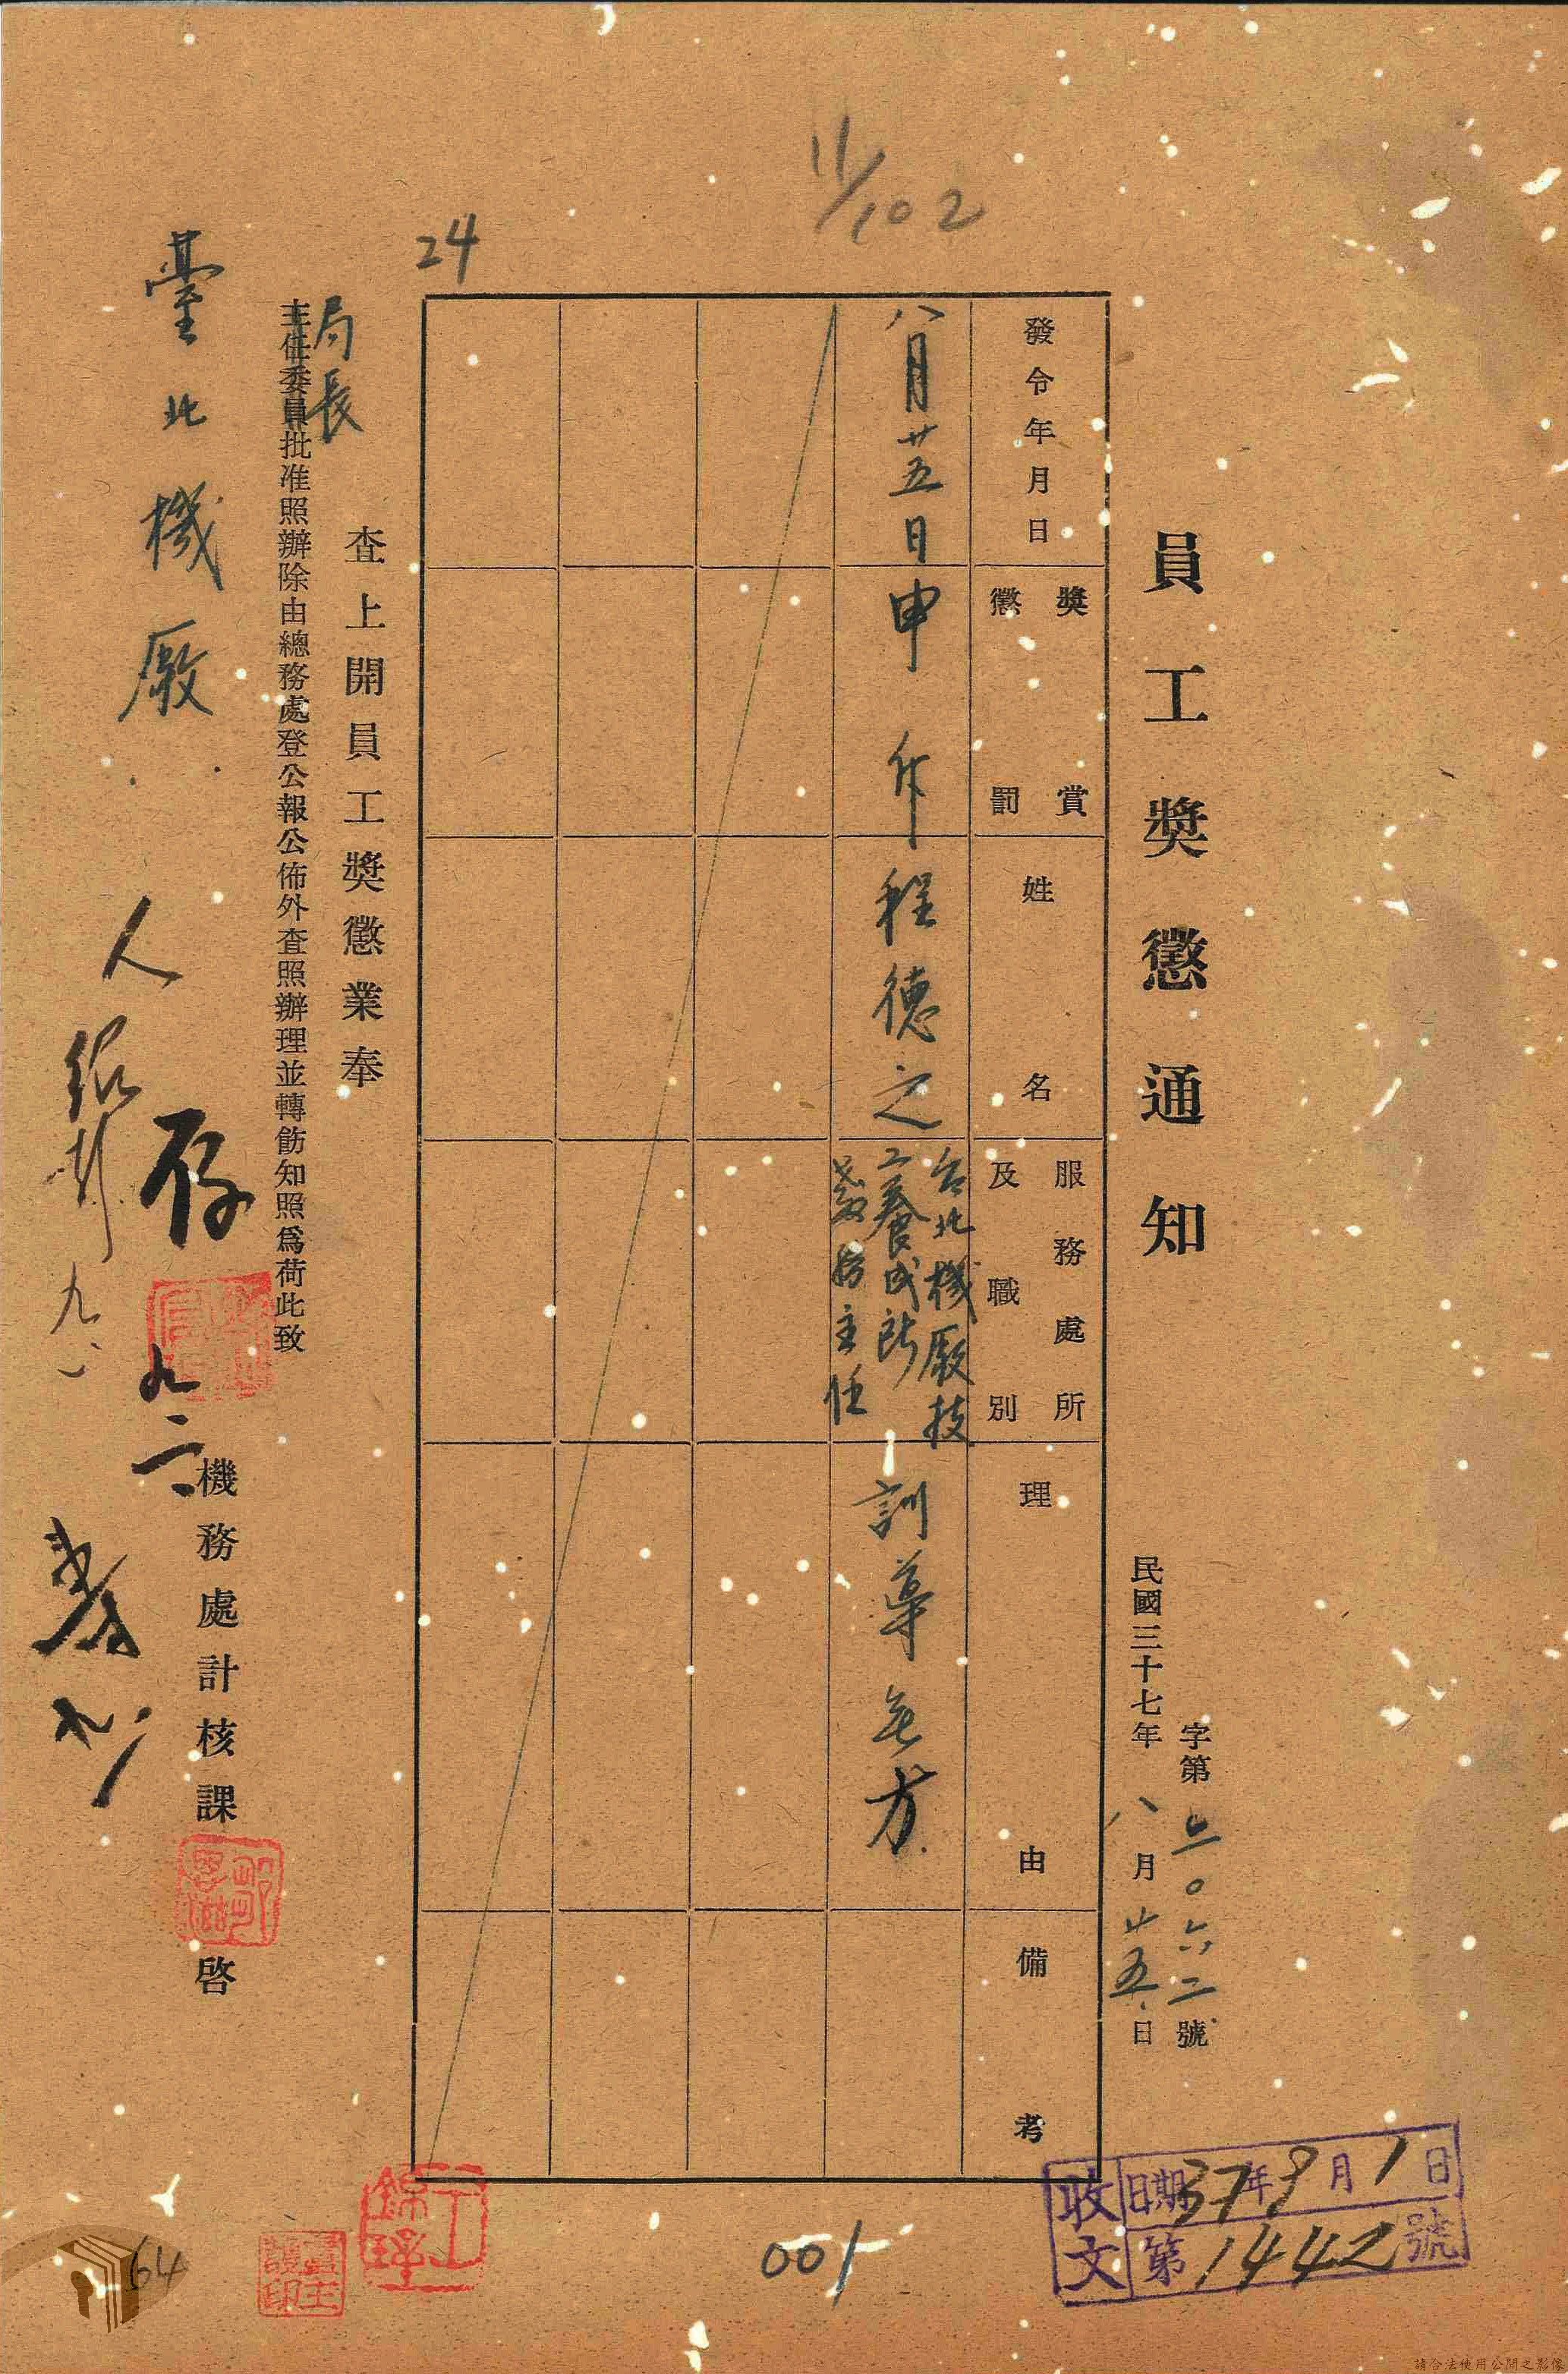 11/102
24
員工獎懲通知
字第五〇六二號
民國三十七年八月廿五日
發令年月日
獎賞
懲罰
姓名
服務處所
及職別
理由
備考
八月廿五日
申斥
程德之
台北機廠技
工養成所
教務主任
訓導無方
查上開員工獎懲業奉
局長
主任委員批准照辦除由總務處登公報公佈外查照辦理並轉飭知照爲荷此致
臺北機廠
機務處計核課啓
人
存
九二
九、一
001
收文
日期37年9月1日
第1442號
64
請合法使用公開之影像